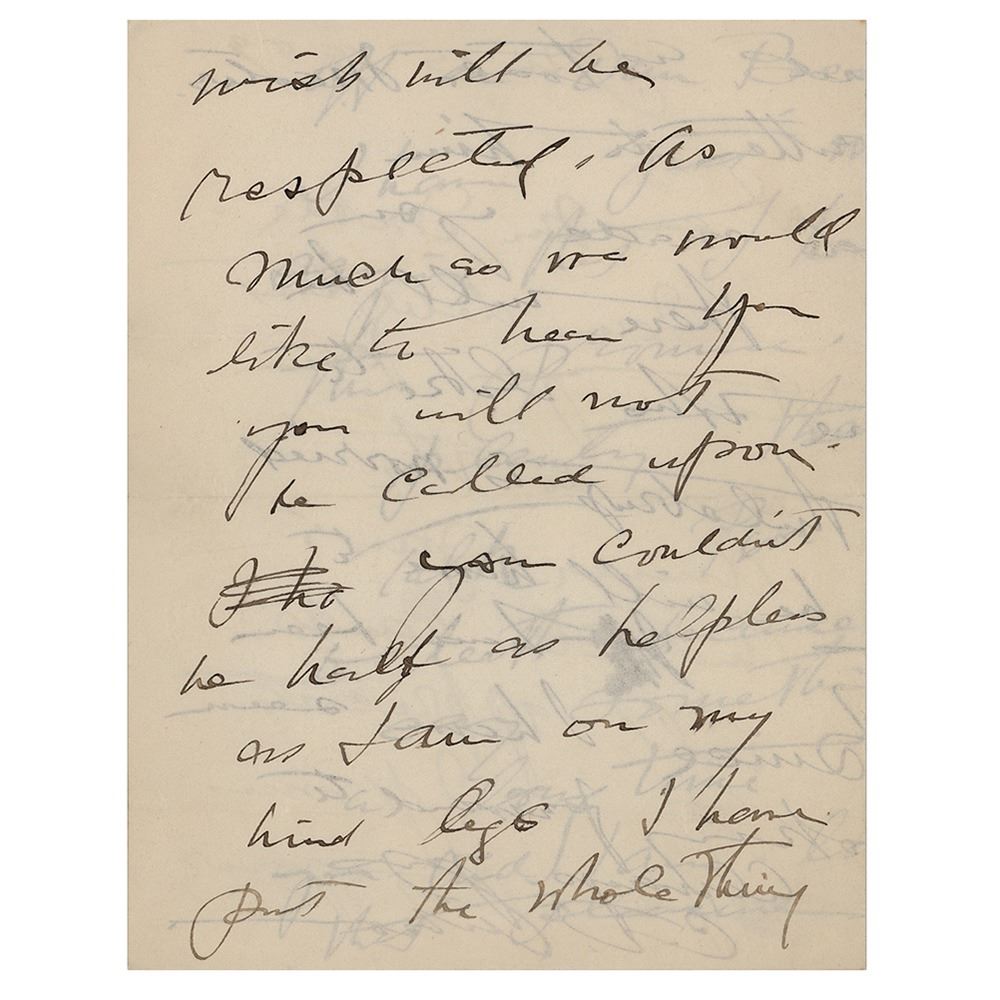 wish will be
respected. As
much as we would
like to hear you
you will not
be called upon.
you couldn't
be half as helpless
as I am on my
hind legs I have
put the whole thing